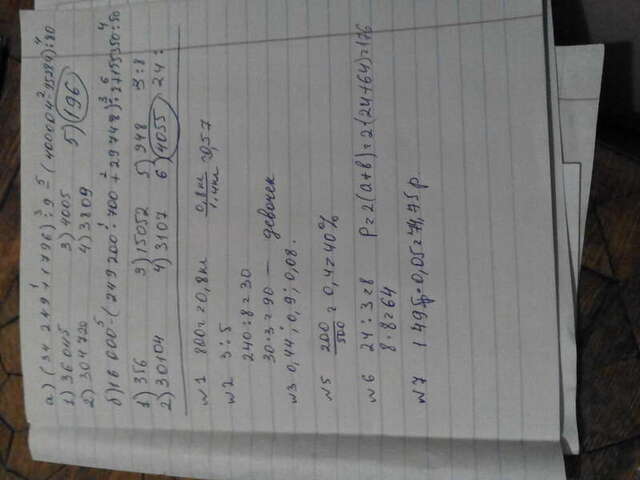 а) (34 249 + 1796) : 9 - (400004 - 95284) : 80
1) 36045 3) 4005 5) 196
2) 304720 4) 3809
б) 16 000 - (249 200 : 700 + 29748) : 2 + 155350 : 50
1) 356 3) 15052 5) 948 3:8
2) 30104 4) 3107 6) 4055 24:
№1 800г = 0,8кг 0,8кг / 1.4кг = 0,57
№2 3:5
240:8=30
30·3=90 — девочек
№3 0,44; 0,9; 0,08.
№5 200/500 = 0,4 = 40%
№6 24:3=8 P=2(a+b)=2(24+64)=176
8·8=64
№7 1495р·0,05=74,75р